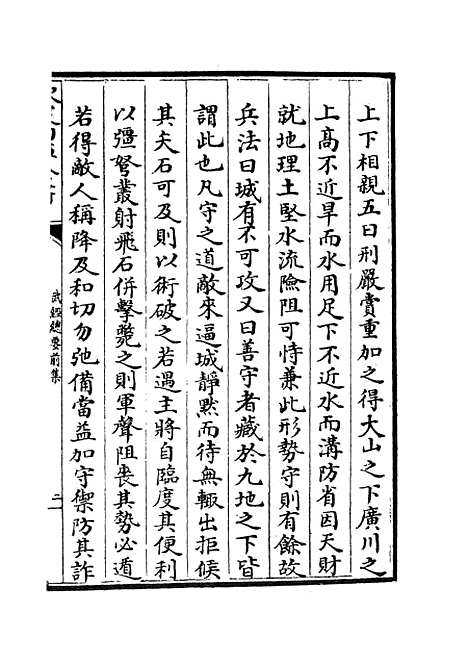 上下相親五曰刑嚴賞重加之得大山之下廣川之
上高不近旱而水用足下不近水而溝防省因天財
就地理土堅水流險阻可恃兼此形勢守則有餘故
兵法曰城有不可攻又曰善守者藏於九地之下皆
謂此也凡守之道敵來逼城靜默而待無輒出拒候
其矢石可及則以術破之若遇主將自臨度其便利
以彊弩叢射飛石併擊斃之則軍聲阻喪其勢必遁
若得敵人稱降及和切勿弛備當益加守禦防其詐
武經總要前集
二